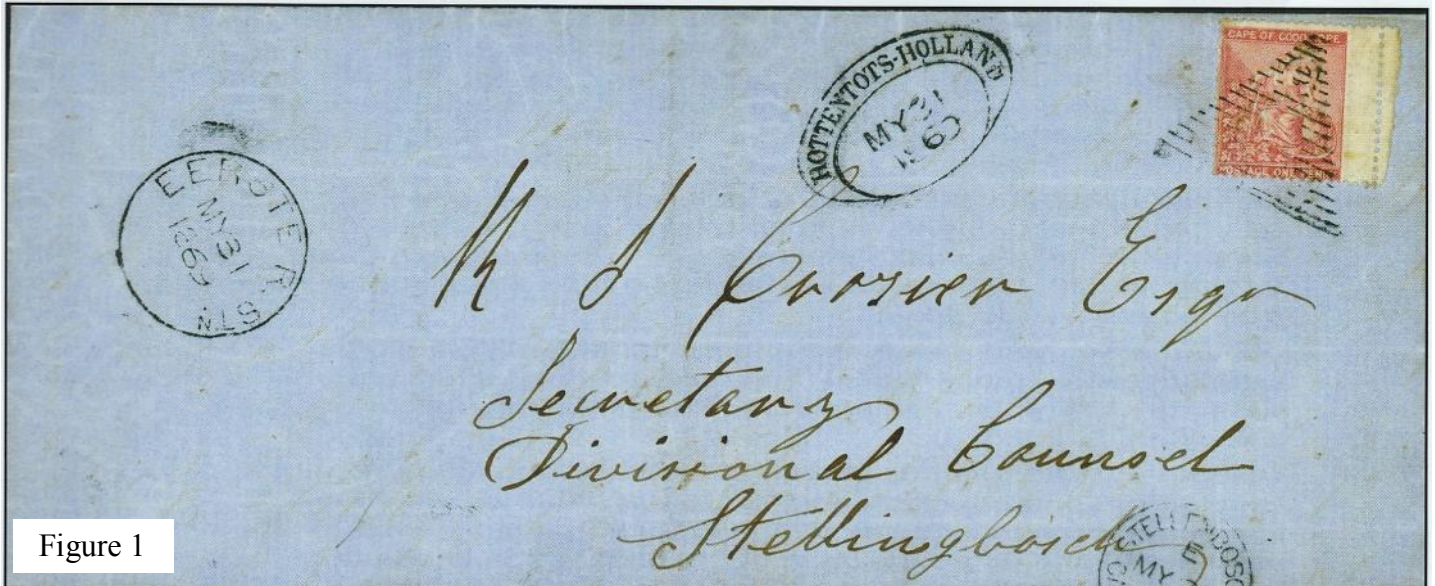 CAPE OF GOOD HOPE
POSTAGE ONE
HOTTENTOTS-HOLLAND
MY 31
1869
EERSTE R. STN
MY 31
1869
Esqr
Secretary
Divisional Counsel
Stellingbosch
STELLENBOSC
MY
Figure 1